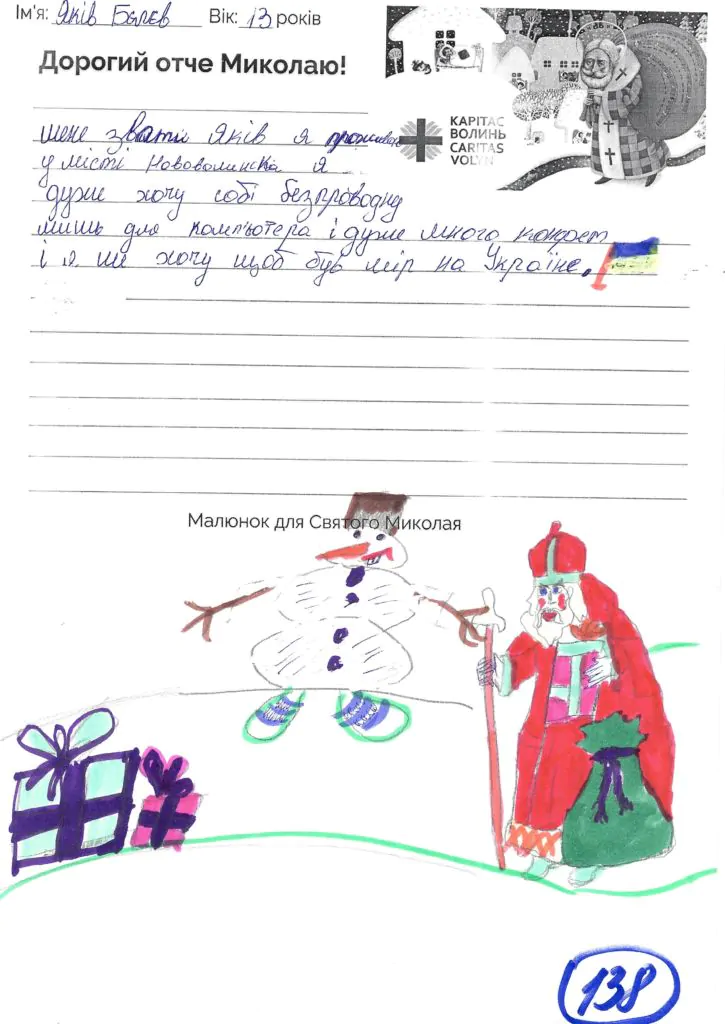 Ім'я: Яків Бєлєв Вік: 13 років
Дорогий отче Миколаю!
КАРІТАС
ВОЛИНЬ
CARITAS
VOLYN
мене звати Яків я проживаю
у місті Нововолинськ я
дуже хочу собі безпроводну
миш для комп'ютера і дуже много конфет
і я ши хочу щоб був мір на Україне.
Малюнок для Святого Миколая
138